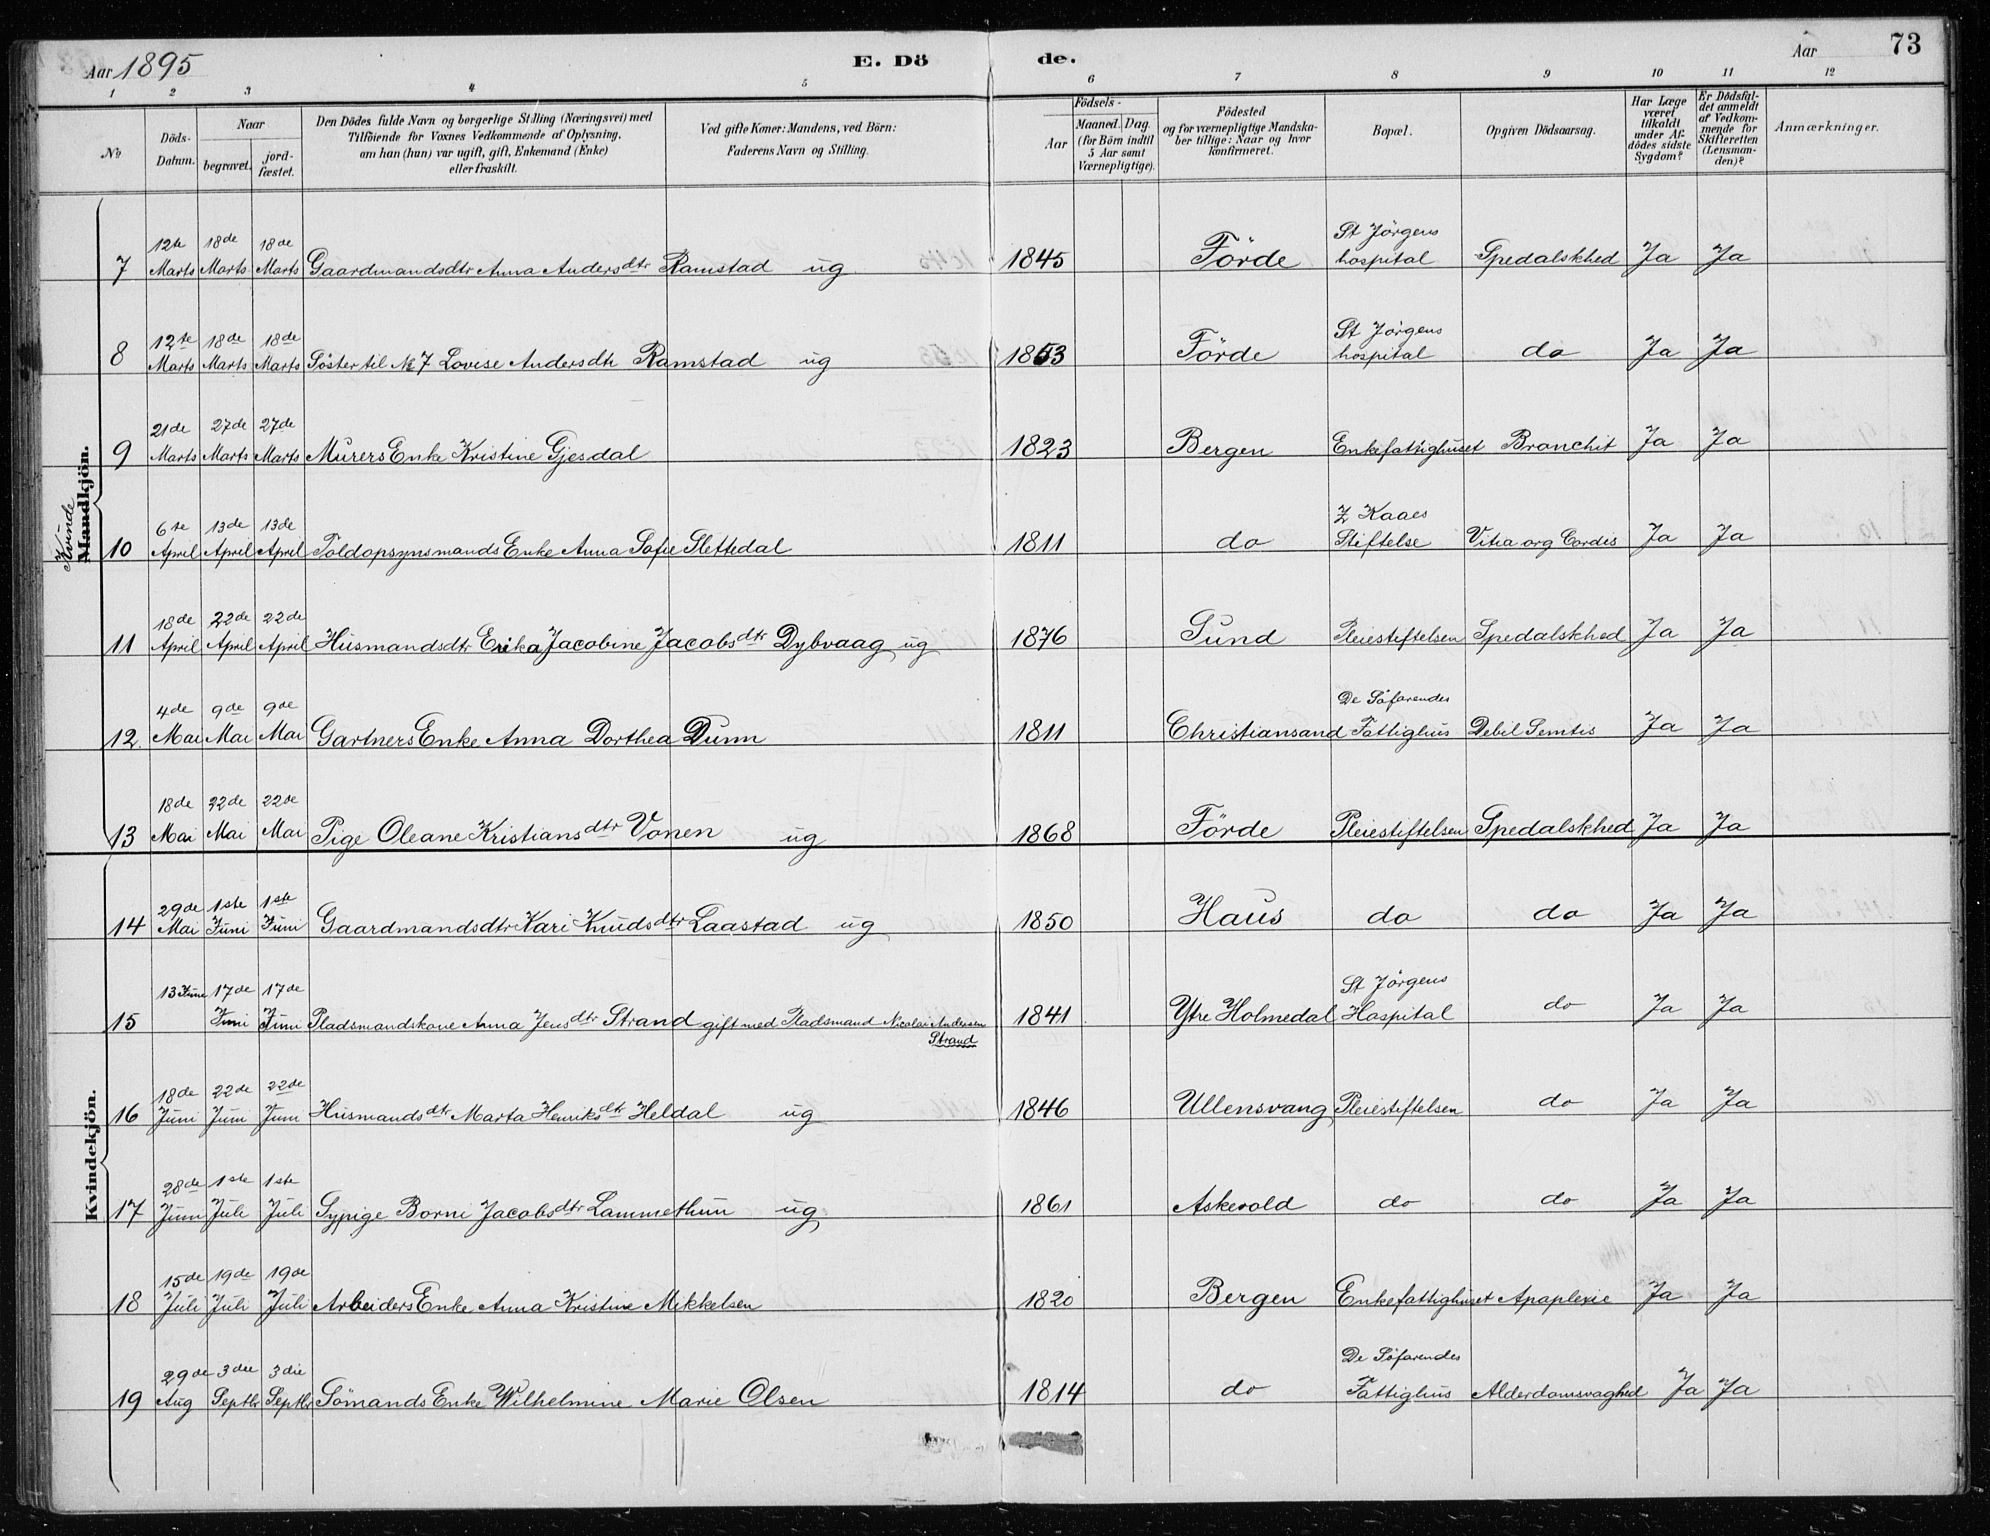 Aar 1895
E. Dö
de.
Aar
73
1 2 3 4 5 6 7 8 9 10 11 12
№
Döds-Datum.
Naar
begravet.
jord-fæstet.
Den Dödes fulde Navn og borgerlige Stilling (Næringsvei) med
Tilföiende for Voxnes Vedkommende af Oplysning,
om han (hun) var ugift, gift, Enkemand (Enke)
eller fraskilt.
Ved gifte Koner: Mandens, ved Börn:
Faderens Navn og Stilling.
Födsels-
Aar
Maaned. Dag.
(for Börn indtil
5 Aar samt
Værnepligtige).
Födested
og for værnepligtige Mandska-
ber tillige: Naar og hvor
konfirmeret.
Bopæl.
Opgiven Dödsaarsag.
Har Læge
været
tilkaldt
under Af-
dödes sidste
Sygdom?
Er Dödsfal-
det anmeldt
af Vedkom-
mende for
Skifteretten
(Lensman-
den)?
Anmærkninger.
Kvinde
Mandkjön.
7 12te Marts 18de Marts 18de Marts Gaardmandsdtr Anna Andersdtr Ramstad ug 1845 Förde St Jörgens hospital Spedalskhed Ja Ja
8 12te Marts 18de Marts 18de Marts Söster til № 7 Lovise Andersdtr Ramstad ug 1853 Förde St Jörgens hospital do Ja Ja
9 21de Marts 27de Marts 27de Marts Murers Enke Kristine Gjesdal 1823 Bergen Enkefattighuset Bronchit Ja Ja
10 6te April 13de April 13de April Toldopsynsmands Enke Anna Sofie Slettedal 1811 do Z Kaaes Stiftelse Vitia org Cordis Ja Ja
11 18de April 22de April 22de April Husmandsdtr Erika Jacobine Jacobsdtr Dybvaag ug 1876 Sund Pleiestiftelsen Spedalskhed Ja Ja
12. 4de Mai 9de Mai 9de Mai Gartners Enke Anna Dorthea Dunn 1811 Christiansand De Söfarendes Fattighus Debil Semtis Ja Ja
13 18de Mai 22de Mai 22de Mai Pige Oleane Kristiansdtr Vonen ug 1868 Förde Pleiestiftelsen Spedalskhed Ja Ja
Kvindekjön.
14 29de Mai 1ste Juni 1ste Juni Gaardmandsdtr Kari Knudsdtr Laastad ug 1850 Haus do do Ja Ja
15 13 Juni 17de Juni 17de Juni Pladsmandskone Anna Jensdtr Strand gift med Pladsmand Nicolai Andersen Strand 1841 Ytre Holmedal St Jörgens Hospital do Ja Ja
16 18de Juni 22de Juni 22de Juni Husmandsdtr Marta Henriksdtr Heldal ug 1846 Ullensvang Pleiestiftelsen do Ja Ja
17 28de Juni 1ste Juli 1ste Juli Sypige Borni Jacobsdtr Lammethun ug 1861 Askevold do do Ja Ja
18 15de Juli 19de Juli 19de Juli Arbeiders Enke Anna Kristine Mikkelsen 1820 Bergen Enkefattighuset Apoplexie Ja Ja
19 29de Aug 3die Septbr 3die Septbr Sömands Enke Wilhelmine Marie Olsen 1814 do De Söfarendes Fattighus Alderdomsvaghed Ja Ja